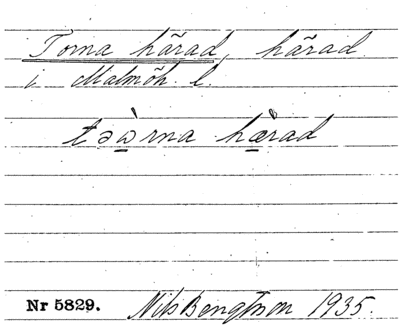 Torna härad, härad
i Malmöh. l.
təàrna hærad
Nr 5829. Nils Bengtson 1935.